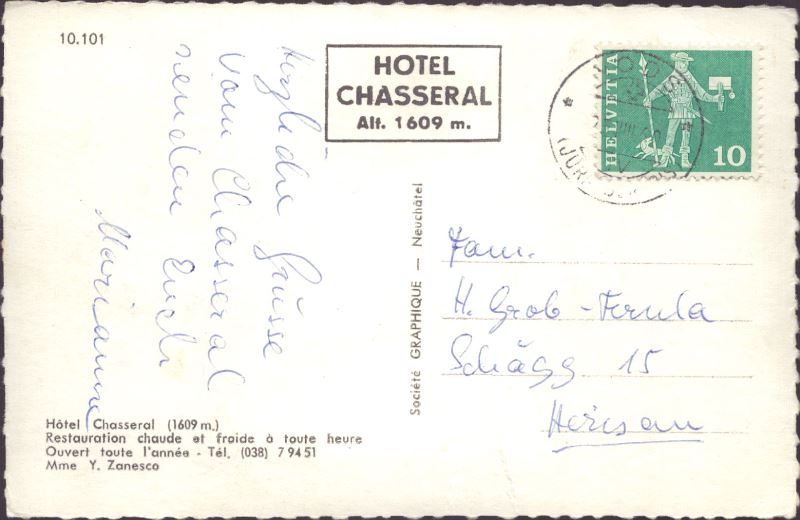 10.101
HOTEL
CHASSERAL
Alt. 1609 m.
HELVETIA
10
Herzliche Grüsse
vom Chasseral
senden Euch
Marianne
Société GRAPHIQUE — Neuchâtel
Fam.
H. Grob-
Schägg 15
Herisau
Hôtel Chasseral (1609 m.)
Restauration chaude et froide à toute heure
Ouvert toute l'année - Tél. (038) 7 94 51
Mme Y. Zanesco